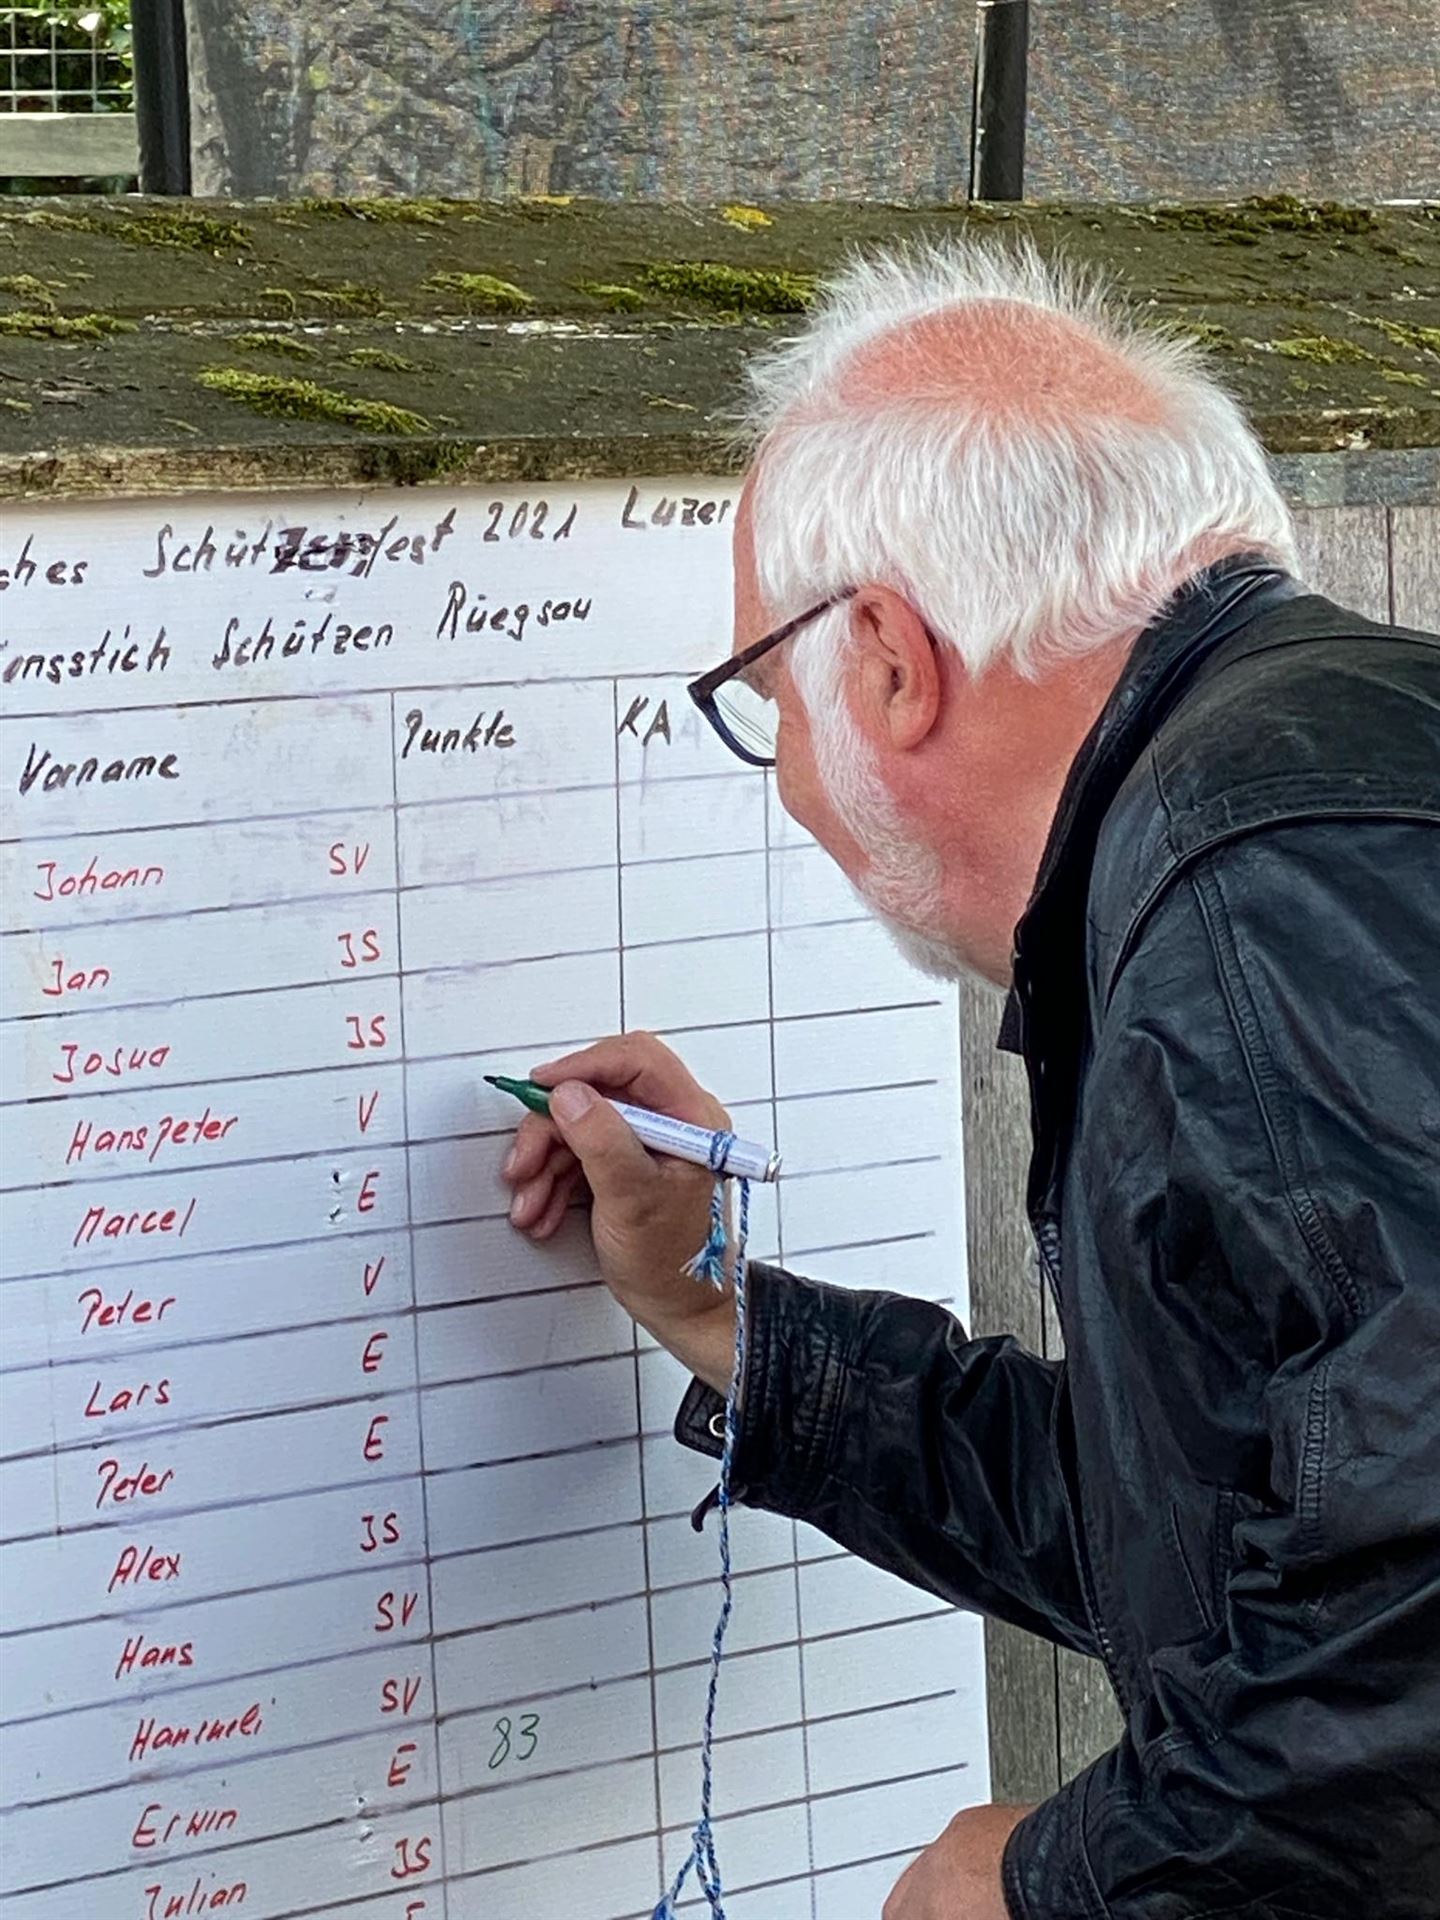 ches Schützenfest 2021 Luzer
onsstich Schützen Rüegsau
Vorname Punkte KA
Johann SV
Jan JS
Josua JS
Hanspeter V
Marcel E
Peter V
Lars E
Peter E
Alex JS
Hans SV
Hansueli SV
Erwin E 83
Julian JS
permanent mark